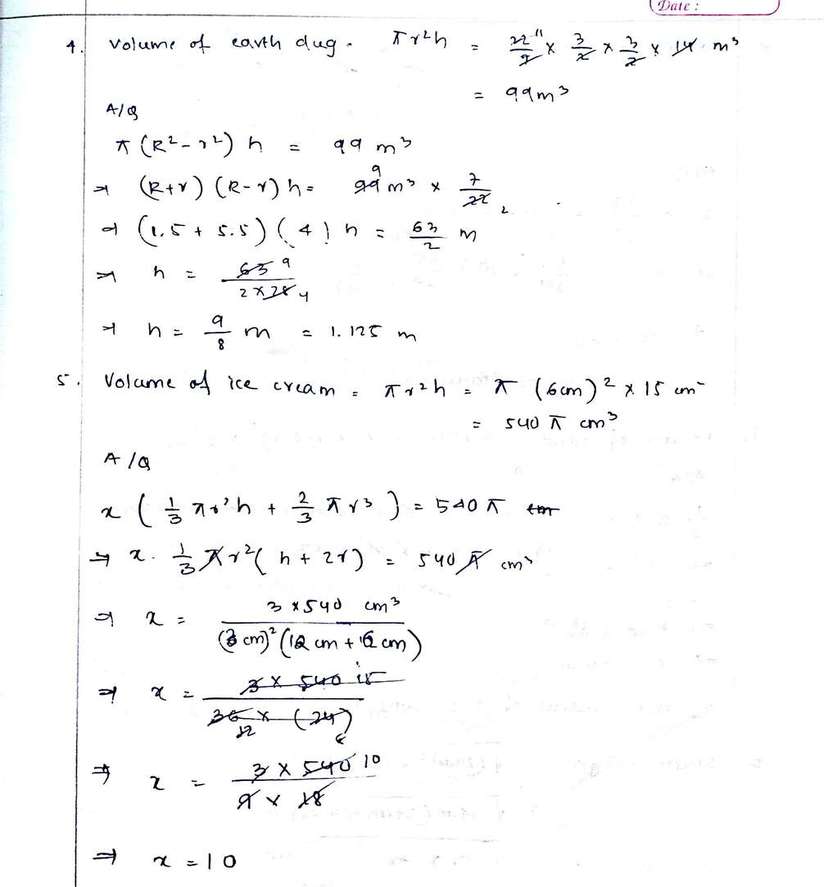 Date :
4. Volume of earth dug. πr²h = 22/7 × 3/2 × 3/2 × 14 m³
= 99m³
A/Q
π(R²-r²) h = 99 m³
⇒ (R+r) (R-r) h = 99 m³ × 7/22
⇒ (1.5 + 5.5) (4) h = 63/2 m
⇒ h = 63/2×28
⇒ h = 9/8 m = 1.125 m
5. Volume of ice cream = πr²h = π (6cm)² × 15 cm
= 540 π cm³
A/Q
x (1/3 πr²h + 2/3 πr³) = 540π cm
⇒ x. 1/3 πr² (h + 2r) = 540π cm³
⇒ x = 3×540 cm³/(3cm)² (12 cm + 6 cm)
⇒ x = 3 × 540 15/36 × (24)
⇒ x = 3 × 540 10/9 × 18
⇒ x = 10